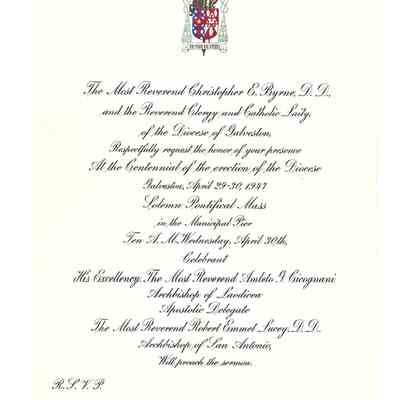 The Most Reverend Christopher E. Byrne, D. D.,
and the Reverend Clergy and Catholic Laity,
of the Diocese of Galveston,
Respectfully request the honor of your presence
At the Centennial of the erection of the Diocese
Galveston, April 29-30, 1947
Solemn Pontifical Mass
in the Municipal Pier
Ten A. M. Wednesday, April 30th,
Celebrant
His Excellency, The Most Reverend Amleto G. Cicognani
Archbishop of Laodicea
Apostolic Delegate
The Most Reverend Robert Emmet Lucey, D. D.
Archbishop, of San Antonio,
Will preach the sermon.
R. S. V. P.